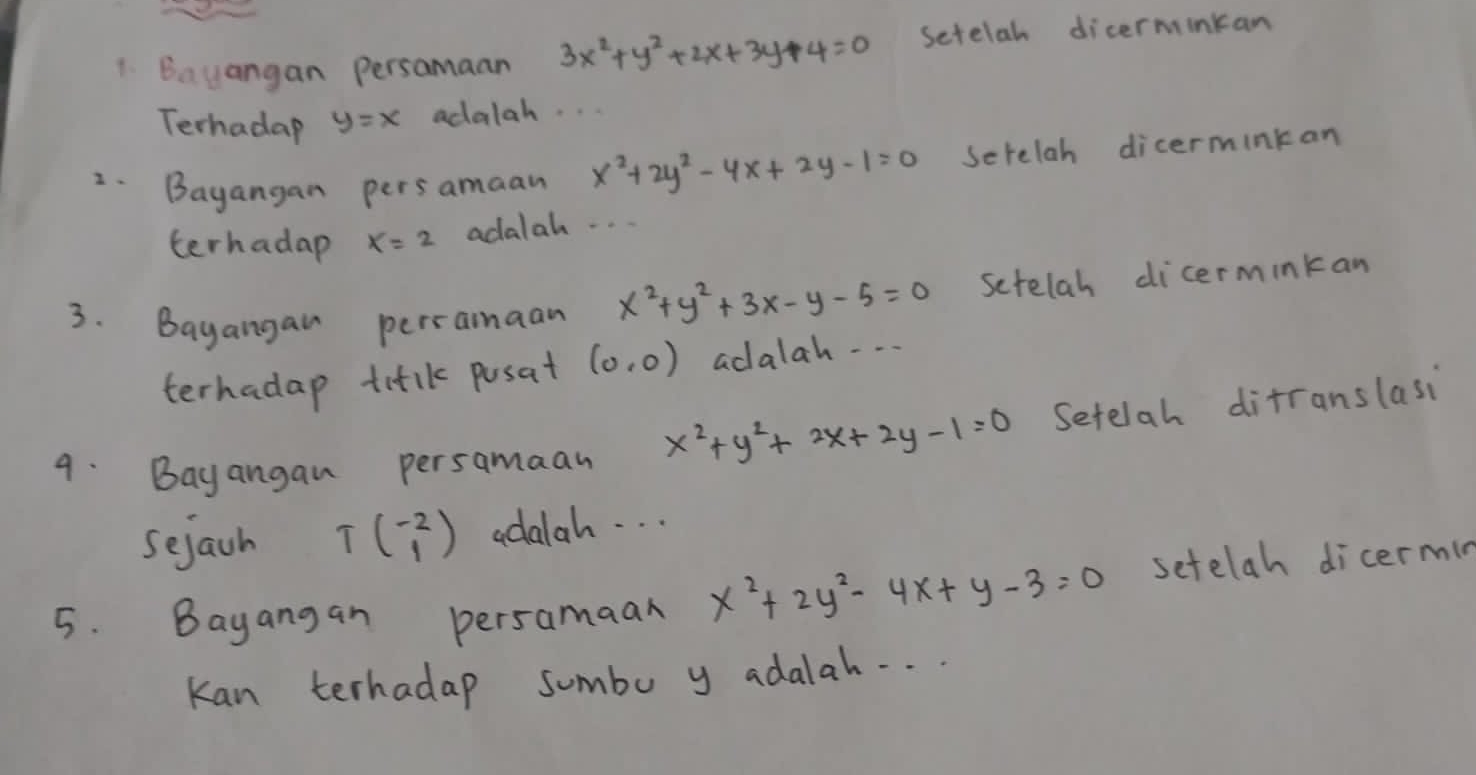 1. Bayangan persamaan 3x²+y²+2x+3y+4=0 setelah dicerminkan
Terhadap y=x adalah ...
2. Bayangan persamaan x²+2y²-4x+2y-1=0 setelah dicerminkan
terhadap x=2 adalah ...
3. Bayangan persamaan x²+y²+3x-y-5=0 setelah dicerminkan
terhadap titik pusat (0,0) adalah ...
4. Bayangan persamaan x²+y²+2x+2y-1=0 setelah ditranslasi
sejauh T(-2 1) adalah ...
5. Bayangan persamaan x²+2y²-4x+y-3=0 setelah dicermin
kan terhadap sumbu y adalah ...